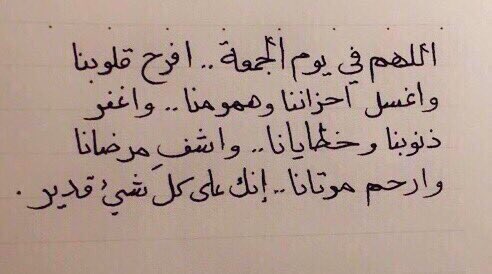 اللهم في يوم الجمعة .. افرح قلوبنا
واغسل احزاننا وهمومنا .. واغفر
ذنوبنا وخطايانا .. واشفِ مرضانا
وارحم موتانا .. إنك على كل شيء قدير .